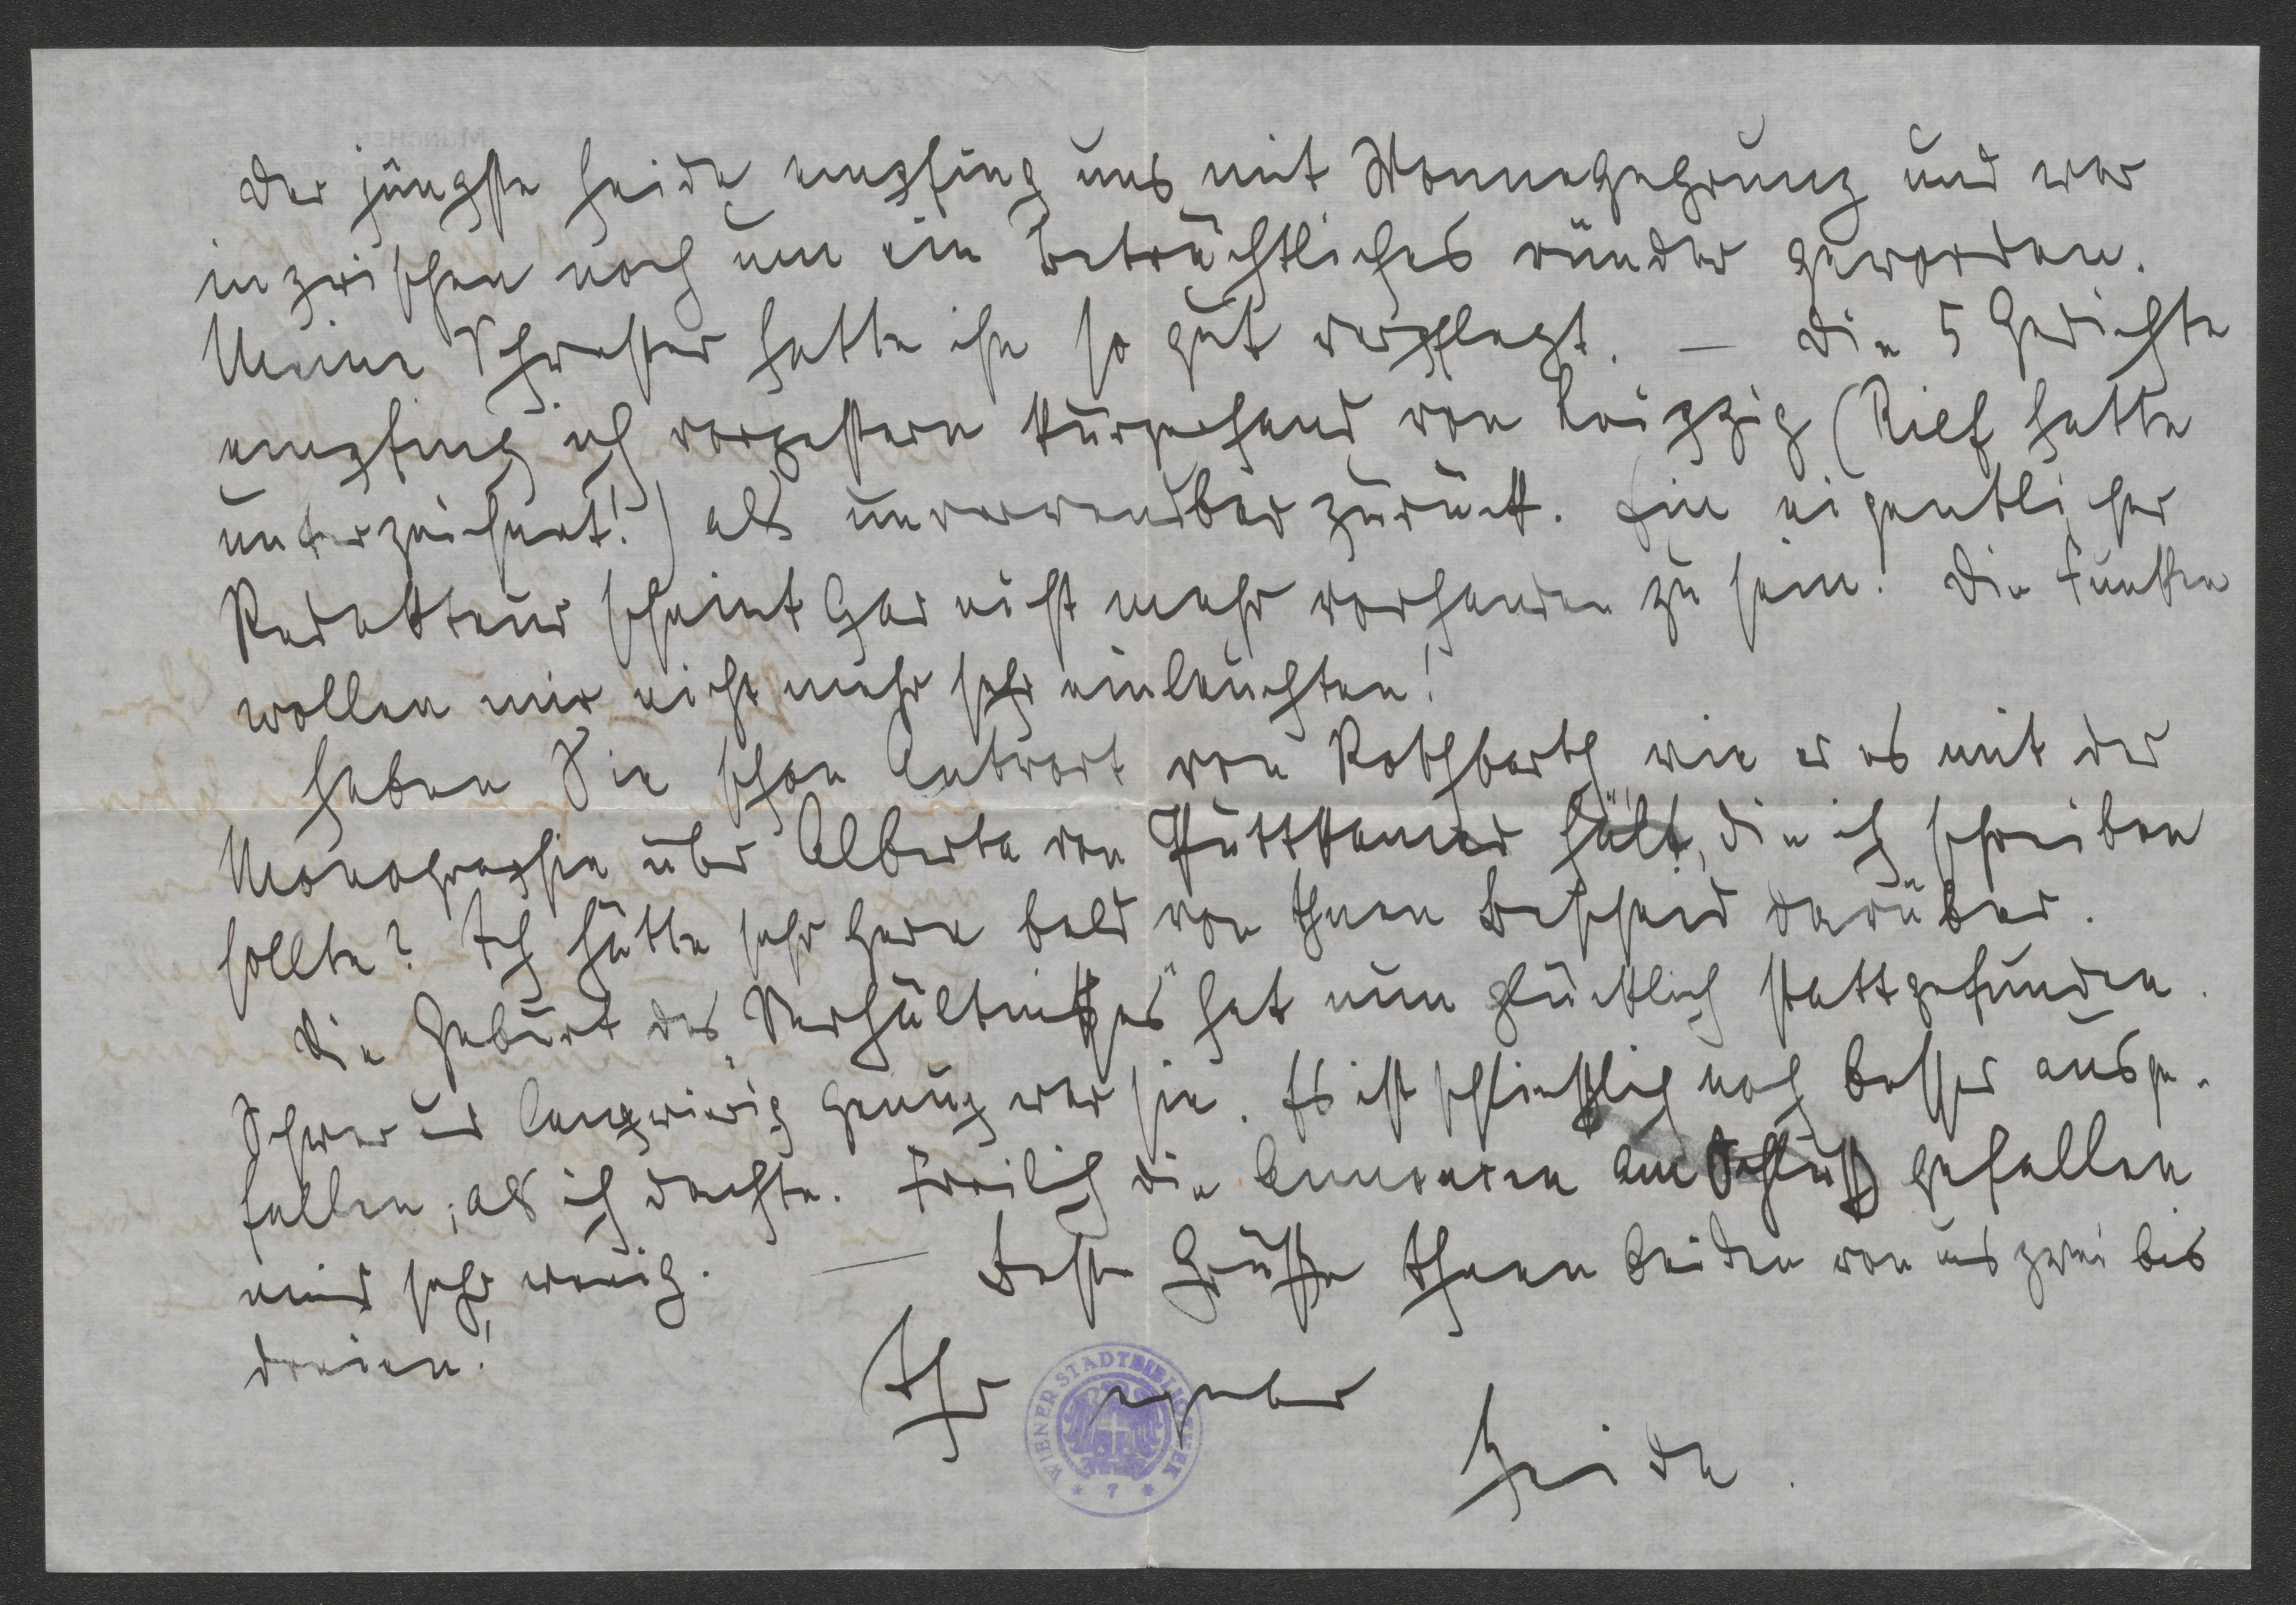 Der jüngste Heide empfing uns mit Wonnegegrunz und war
inzwischen noch um ein Beträchtliches runder geworden.
Meine Schwester hatte ihn so gut verpflegt. — Die 5 Gedichte
empfing ich vorgestern kurzerhand von Leipzig (Rief hatte
unterzeichnet!) als unverwendbar zurück. Ein eigentlicher
Redakteur scheint gar nicht mehr vorhanden zu sein. Die Funken
wollen mir nicht mehr sehr einleuchten!
Haben Sie schon Antwort von Rothbarth wie er es mit der
Monographie über Alberta von Puttkamer hält, die ich schreiben
sollte? Ich hätte sehr gern bald von Ihnen Bescheid darüber.
Die Geburt des „Verhältnißes" hat nun glücklich stattgefunden.
Schwer und langwierig genug war sie. Es ist schließlich noch besser ausge-
fallen, als ich dachte. Freilich die Annoncen am Schluß gefallen
mir sehr wenig. — Beste Grüße Ihnen beiden von uns zwei bis
dreien!
Ihr
Heide.
WIENER STADTBIBLIOTHEK
* 7 *
MÜNCHEN